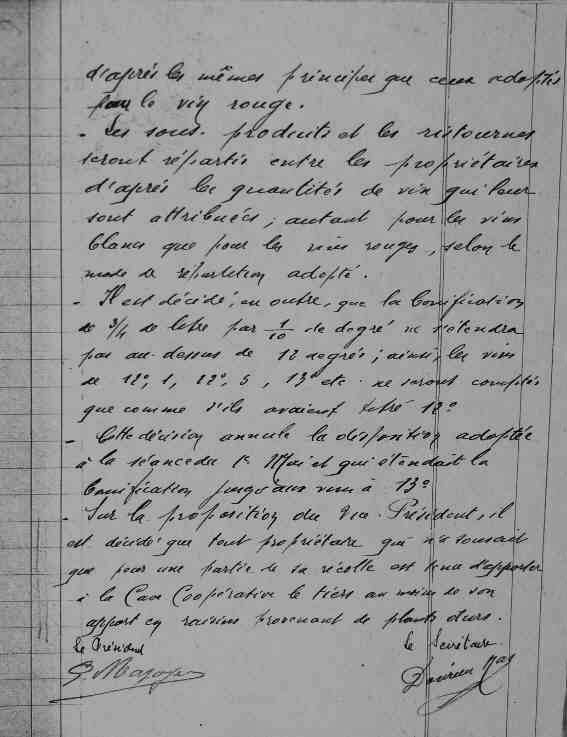 d'après les mêmes principes que ceux adoptés
pour le vin rouge.
- Les sous-produits et les ristournes
seront répartis entre les propriétaires
d'après les quantités de vin qui leur
sont attribuées, autant pour les vins
blancs que pour les vins rouges, selon le
mode de répartition adopté.
- Il est décidé, en outre, que la bonification
de 3/4 de litre par 1/10 de degré ne s'étendra
pas au-dessus de 12 degrés; ainsi, les vins
de 12°,1, 12°,5, 13° etc. ne seront comptés
que comme s'ils avaient titré 12°
- Cette décision annule la disposition adoptée
à la séance du 1er Mai et qui étendait la
bonification jusqu'aux vins à 13°
- Sur la proposition du Vice-Président, il
est décidé que tout propriétaire qui n'a souscrit
que pour une partie de sa récolte est tenu d'apporter
à la Cave Coopérative le tiers au moins de son
apport en raisins provenant de plants durs.
le Président le Secrétaire